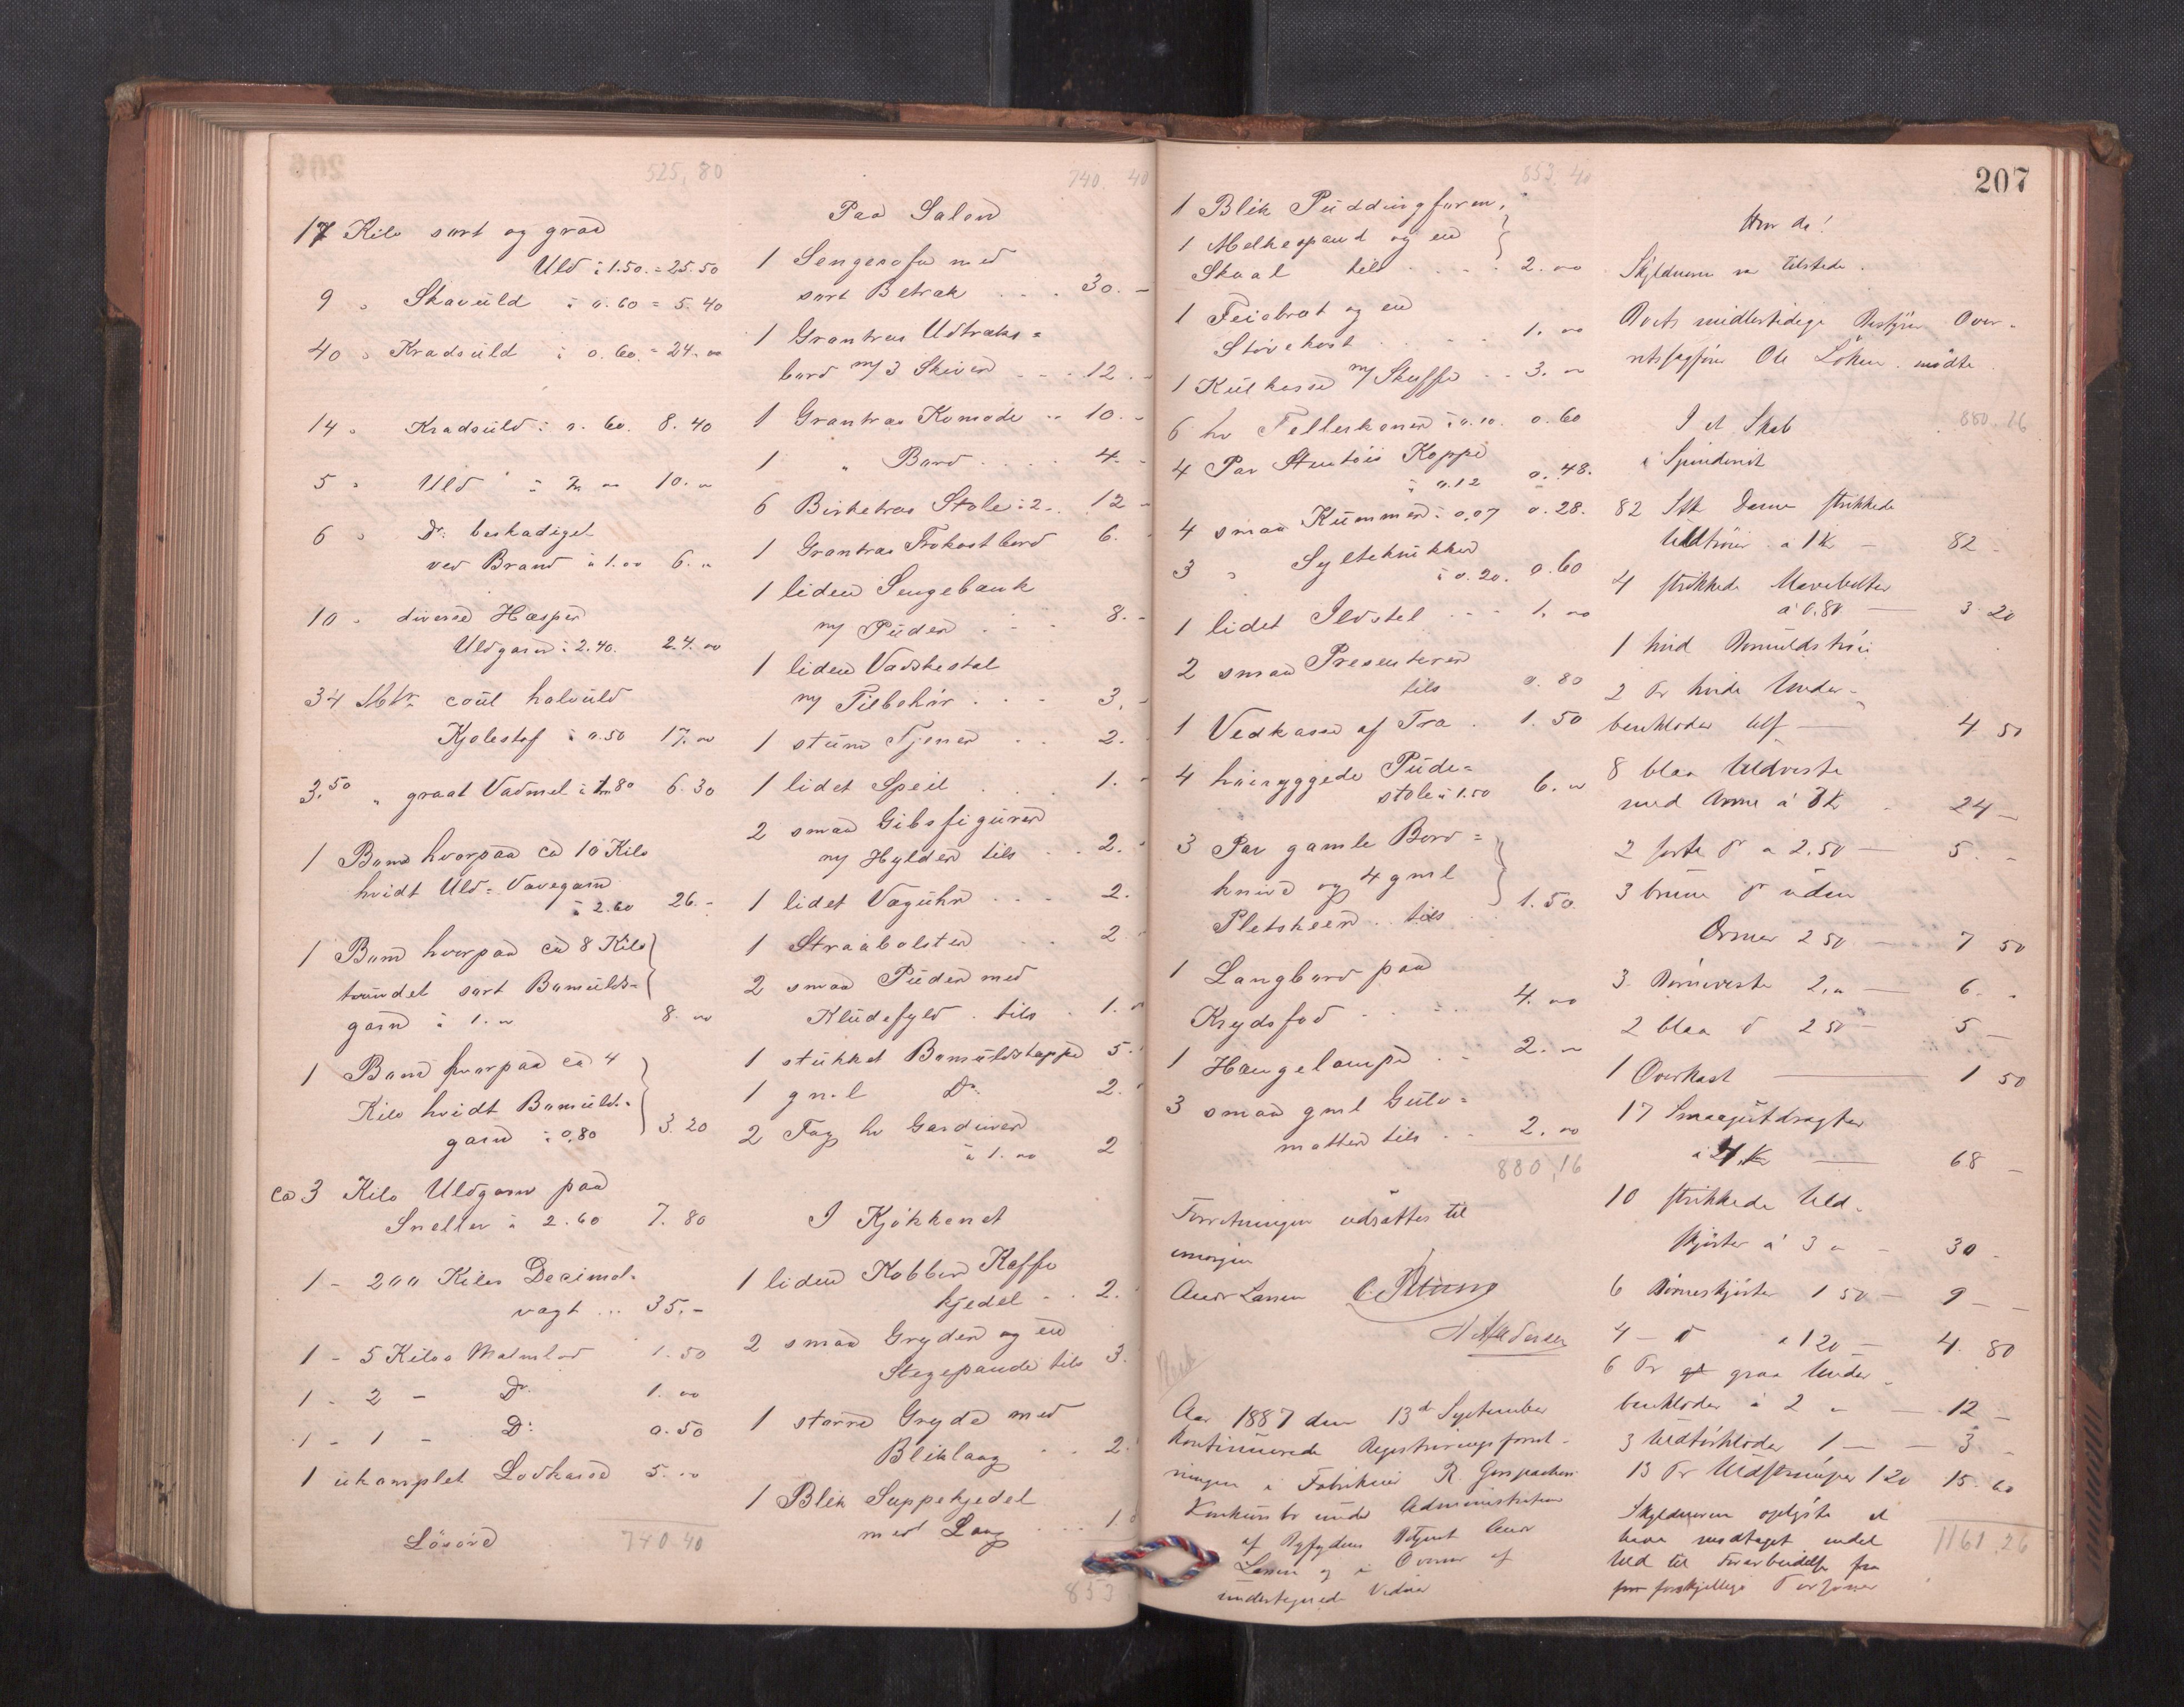 525,80
17 Kilo sort og graa
Uld à 1.50. = 25.50
9 " Skavuld à 0.60 = 5.40
40 " Kraduld à 0.60. = 24.00
14 " Kraduld à 0.60. 8.40
5 " Uld à 2.00 10.00
6 " Do beskadiget
ved Brand à 1.00 6.00
10 " diverse Hasper
Uldgarn à 2.40. 24.00
34 Mtr. coul halvuld
Kjolestof à 0.50 17.00
3.50 " graat Vadmel à 1.80 6.30
1 Bom hvorpaa ca 10 Kilo
hvidt Uld-Vævegarn
à 2.60 26.-
1 Bom hvorpaa ca 8 Kilo
tvundet sort Bomulds-
garn à 1.00 8.00
1 Bom hvorpaa ca 4
Kilo hvidt Bomulds-
garn à 0.80 3.20
ca 3 Kilo Uldgarn paa
Sneller à 2.60 7.80
1 - 200 Kilos Decimal-
vægt ... 35.-
1 - 5 Kilos Malmlod 1.50
1 - 2 - Do 1.00
1 - 1 - Do 0.50
1 ukomplet Lodkasse 5.00
Løsøre 740 40
740. 40
Paa Salen
1 Sengesofa med
sort Betræk . . . 30.-
1 Grantræs Udtræks=
bord m/3 Skiver - - - 12.-
1 Grantræs Komode .. 10.-
1 " Bord . . . . 4.-
6 Birketræs Stole à 2.. 12-
1 Grantræs Frokostbord 6.
1 liden Sengebænk
m/ Puder . . . 8.-
1 liden Vaskestol
m/ Tilbehør . . . 3.
1 stum Tjener . . 2.
1 lidet Speil . . . 1.
2 smaa Gibsfigurer
m/ Hylder tils . . 2.
1 lidet Væguhr . . . 2.
1 Straabolster . . 2
2 smaa Puder med
Kludefyld . tils . 1.
1 stukket Bomuldstæppe 5.
1 gml Do 2.
2 Fag hv Gardiner
à 1.00 2
I Kjøkkenet
1 liden Kobber Kaffe
kjedel . . 2.
2 smaa Gryder og en
Stegepande tils 3.
1 større Gryde med
Bliklaag . . 2.
1 Blik Suppekjedel
med Laag . . . 1.
853
853. 40
1 Blik Puddingform,
1 Melkespand og en
Skaal tils . . . . 2.00
1 Feiebræt og en
Støvekost . . . . . 1.00
1 Kulkasse m/ Skuffe . . 3.00
6 hv Tellerkener à 0.10. 0.60
4 Par Stentøis Koppe
à 0.12 0.48.
4 smaa Kummer à 0.07 0.28.
3 " Syltekrukker
à 0.20. 0.60
1 lidet Ildstel . . . 1.00
2 smaa Presenterer
tils 0.80
1 Vedkasse af Træ . 1.50
4 høiryggede Pude=
stole à 1.50 6.00
3 Par gamle Bord=
knive og 4 gml
Pletskeer .. tils 1.50.
1 Langbord paa
Krydsfod . . . . 4.00
1 Hængelampe . . 2.00
3 smaa gml Gulv=
matter tils . . 2.00
880,16
Forretningen udsættes til
imorgen
Aar 1887 den 13de September
kontinuerede Registreringsforret-
ningen i Fabrikeier
Konkursbo under Administration
af
og i Overvær af
undertegnede Vidner
207
Hvor da!
Skyldneren var tilstede.
Boets midlertidige Bestyrer Over-
retssagfører Ole Løken mødte
880.16
I et Skab
i Spinderiet
82 Stk Dame strikkede
Uldtrøier à 1 Kr - 82 -
4 strikkede Mavebelter
à 0.80 - 3.20
1 hvid Bomuldstrøi
2 Pr hvide Under-
benklæder tils - 4 50
8 blaa Uldveste
med Arme à 3 Kr . 24 -
2 sorte Do a 2.50 - 5. -
3 brune Do uden
Ærmer 2 50 - 7 50
3 Børneveste 2.00 - 6. -
2 blaa do 2 50 - 5 -
1 Overkast - 1 50
17 Smaagutdragter
à 4 Kr - 68 -
10 strikkede Uld-
skjørter à 3 - 30 -
6 Børneskjørter 1 50 - 9 - -
4 - do a 1 20 - 4. 80
6 Pr graa Under-
benklæder à 2 - 12 -
3 Uldtørklæder 1 - - 3 -
13 Pr Uldstrømper 1 20 15. 60
Skyldneren oplyste at
have modtaget endel 1161.26
Uld til Forarbeidelse fra
forskjellige Personer